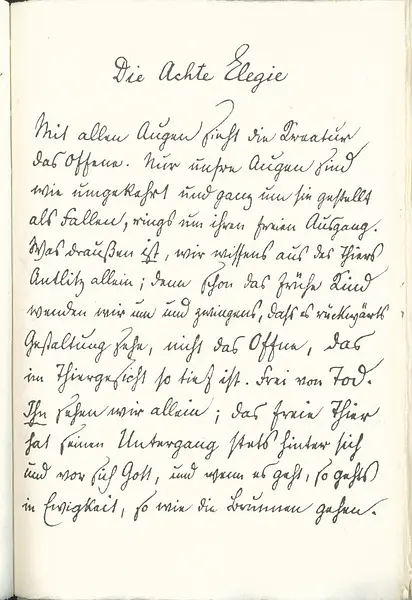 Die Achte Elegie
Mit allen Augen sieht die Kreatur
das Offene. Nur unsre Augen sind
wie umgekehrt und ganz um sie gestellt
als Fallen, rings um ihren freien Ausgang.
Was draußen ist, wir wissens aus des Thiers
Antlitz allein; denn schon das frühe Kind
wenden wir um und zwingens, daß es rückwärts
Gestaltung sehe, nicht das Offne, das
im Thiergesicht so tief ist. Frei von Tod.
Ihn sehen wir allein; das freie Thier
hat seinen Untergang stets hinter sich
und vor sich Gott, und wenn es geht, so gehts
in Ewigkeit, so wie die Brunnen gehen.